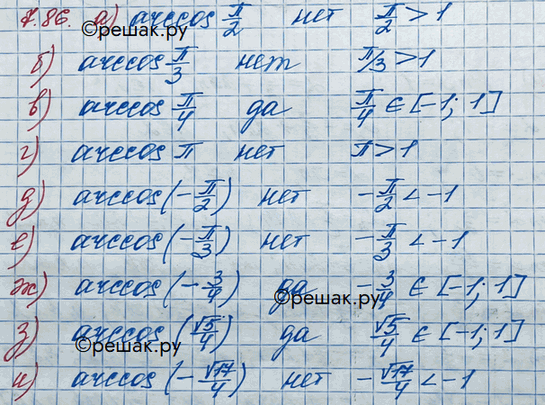 7.86. а) arccos π/2 нет π/2 > 1
©reшак.ру
б) arccos π/3 нет π/3 > 1
в) arccos π/4 да π/4 ∈ [-1; 1]
г) arccos π нет π > 1
д) arccos(-π/2) нет -π/2 < -1
е) arccos(-π/3) нет -π/3 < -1
ж) arccos(-3/4) да -3/4 ∈ [-1; 1]
©reшак.ру
з) arccos(√5/4) да √5/4 ∈ [-1; 1]
©reшак.ру
и) arccos(-√17/4) нет -√17/4 < -1